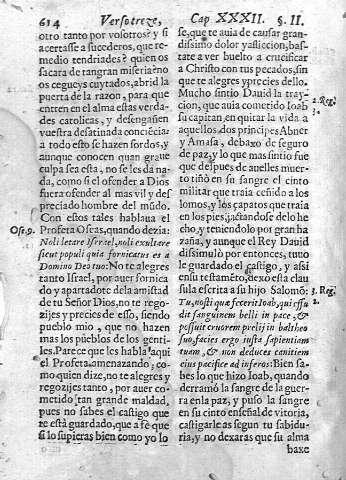 614 Versotreze, Cap XXXII. §. II.
otro tanto por vosotros? y si
acertasse a sucederos, que re-
medio tendriades? quien os
sacara de tan gran miseria? no
os cegueys cuytados, abrid la
puerta de la razon, para que
entren en el alma estas verda-
des catolicas, y desengañen
vuestra desatinada conciēcia
a todo esto se hazen sordos, y
aunque conocen quan graue
culpa sea esta, no se les da na-
da, como si el ofender a Dios
fuera ofender al mas vil y des-
preciado hombre del mūdo.
Con estos tales hablaua el
Ose. 9. Profeta Oseas, quando dezia:
Noli letare Israel, noli exultare
sicut populi quia fornicatus es a
Domino Deo tuo: No te alegres
tanto Israel, por auer fornica
do y apartadote de la amistad
de tu Señor Dios, no te rego-
zijes y precies de esso, siendo
pueblo mio, que no hazen
mas los pūeblos de los genti-
les. Parece que les habla aqui
el Profeta amenazando, co-
mo quien dize, no te alegres y
regozijes tanto, por auer co-
metido tan grande maldad,
pues no sabes el castigo que
te está guardado, que a fè que
si lo supieras bien como yo lo
se, que te auia de causar gran-
dissimo dolor y afliccion, bas-
tate a ver buelto a crucificar
a Christo con tus pecados, sin
que te alegres y precies dello.
Mucho sintio Dauid la tray-
cion, que auia cometido Ioab 2. Reg.
su capitan, en quitar la vida a 3.
aquellos dos principes Abner
y Amasa, debaxo de seguro
de paz, y lo que mas sintio fue
que despues de auellos muer-
to tiñò en su sangre el cinto
militar que traia ceñido a los
lomos, y los çapatos que traia
en los pies, jactandose delo he
cho, y teniendolo por gran ha
zaña, y aunque el Rey Dauid
dissimulò por entonces, tuuo
le guardado el castigo, y assi
en su testamēto, dexo esta clau
sula escrita a su hijo Salomō: 3. Reg.
Tu, nosti quæ fecerit Ioab, qui effu 2.
dit sanguinem belli in pace, &
possuit cruorem prelij in baltheo
suo, facies ergo iusta sapientiam
tuam, & non deduces canitiem
eius pacifice ad inferos: Bien sa-
bes lo que hizo Ioab, quando
derramò la sangre de la guer-
ra en la paz, y puso la sangre
en su cinto en señal de vitoria,
castigarle as segun tu sabidu-
ria, y no dexaras que su alma
baxe